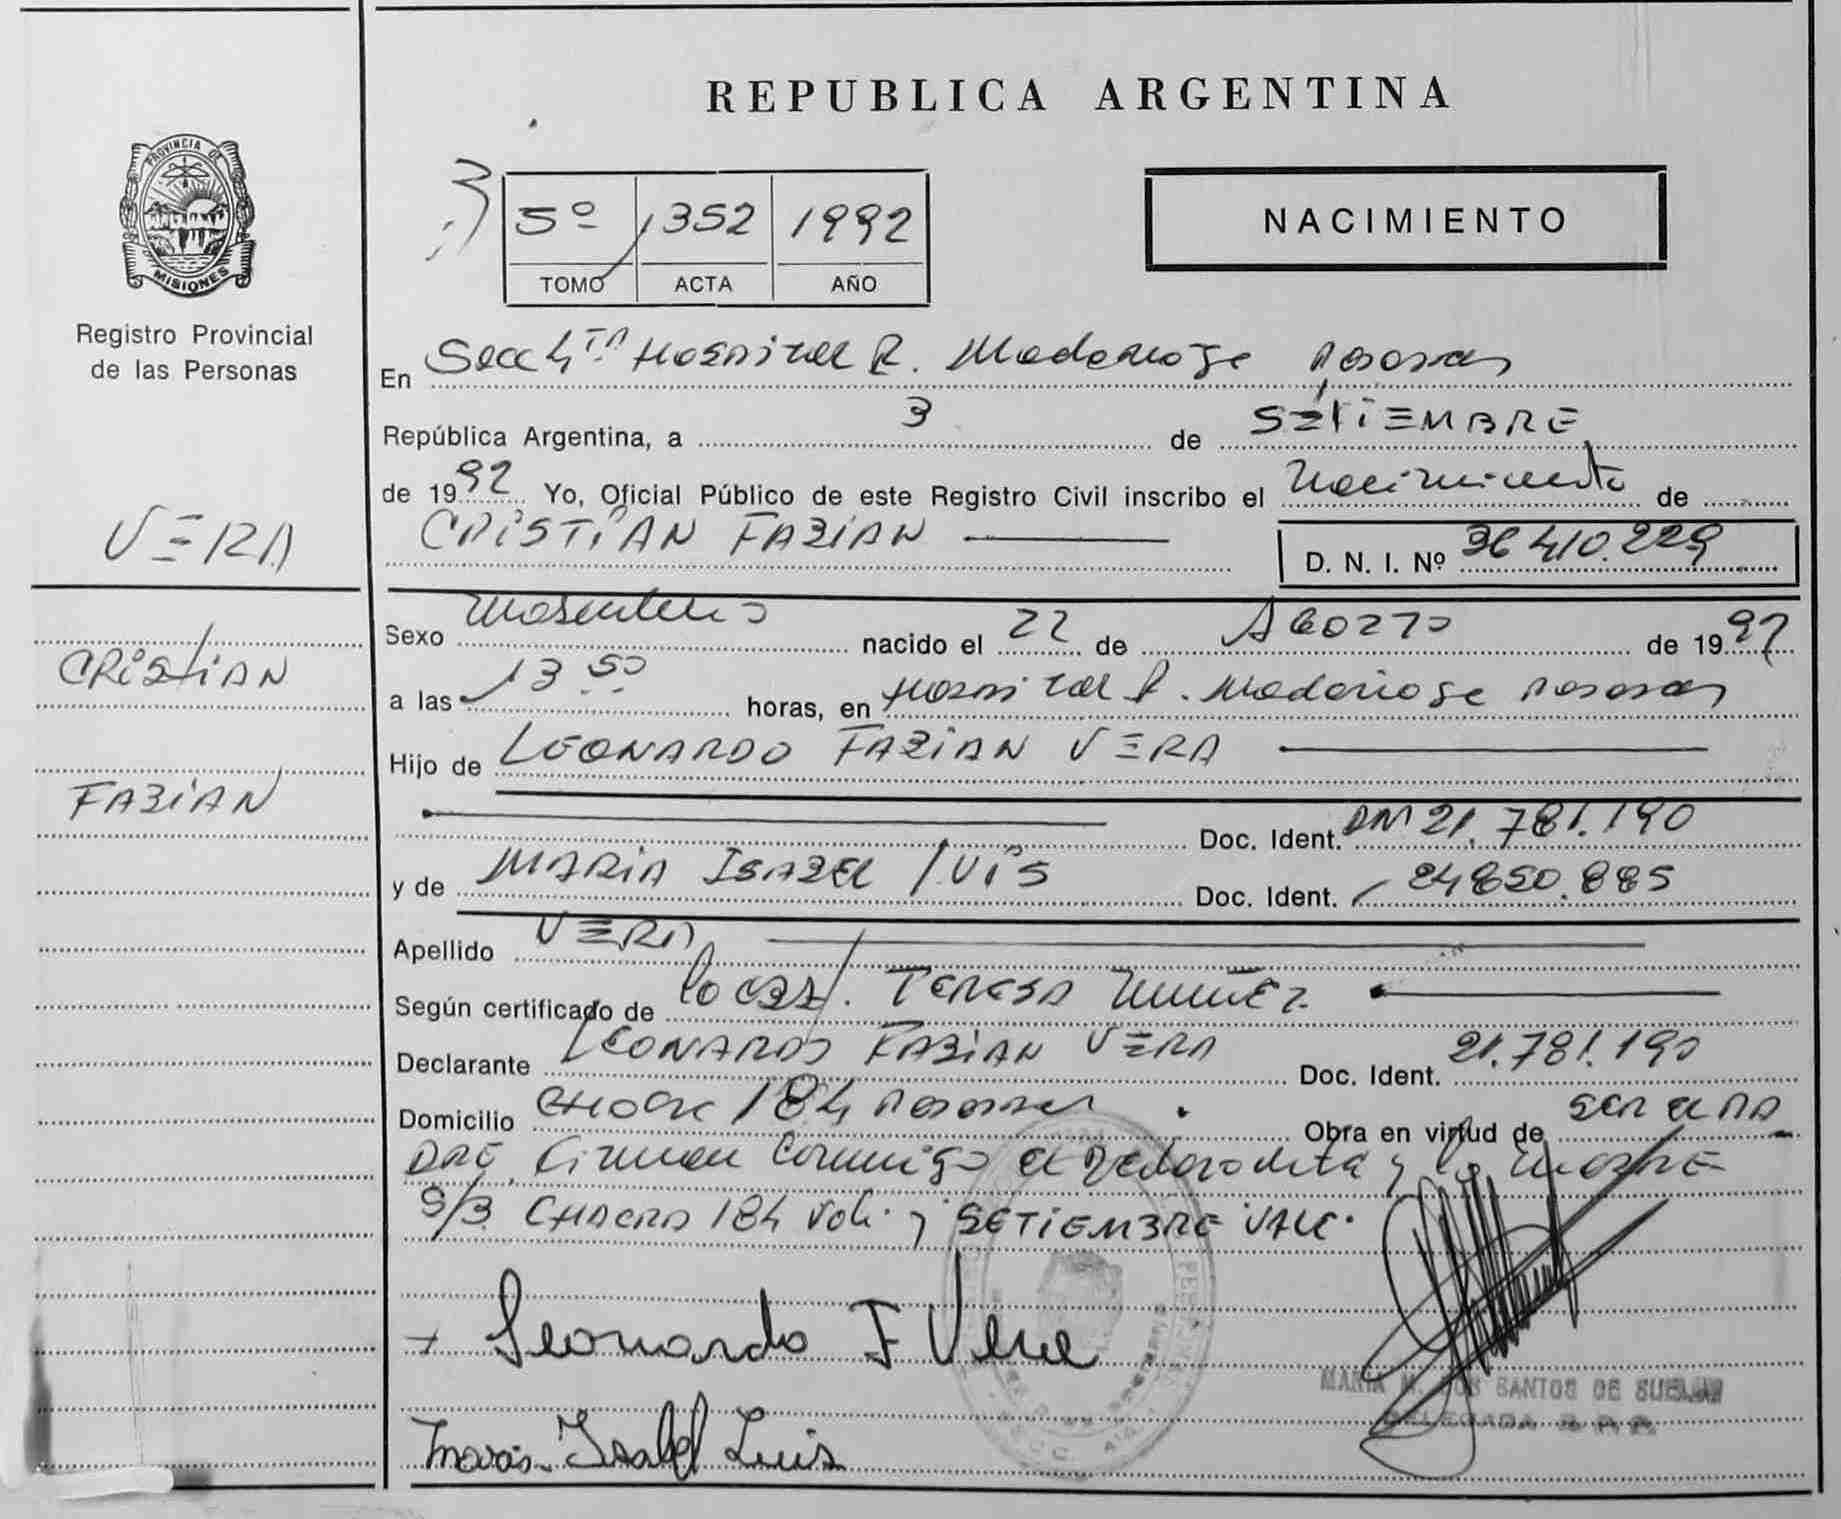 REPUBLICA ARGENTINA
PROVINCIA DE
MISIONES
Registro Provincial
de las Personas
5º 1352 1992
TOMO ACTA AÑO
NACIMIENTO
En Secc 4ta Hospital R. Madariaga Posadas
República Argentina, a 3 de SETIEMBRE
de 1992 Yo, Oficial Público de este Registro Civil inscribo el Nacimiento de
CRISTIAN FABIAN
D. N. I. Nº 36.410.229
VERA
CRISTIAN
FABIAN
Sexo Masculino nacido el 22 de AGOSTO de 1992
a las 13 50 horas, en Hospital R. Madariaga Posadas
Hijo de LEONARDO FABIAN VERA
Doc. Ident. DNI 21.781.190
y de MARIA ISABEL LUIS Doc. Ident. 24850.885
Apellido VERA
Según certificado de TERESA NUÑEZ
Declarante LEONARDO FABIAN VERA Doc. Ident. 21.781.190
Domicilio 184 Posadas Obra en virtud de SER EL PA
DRE Firman Conmigo el Declarante y la MADRE
CHACRA 184 SETIEMBRE VALE.
Leonardo F Vera
MARIA M. DOS SANTOS DE
DELEGADA
María Isabel Luis